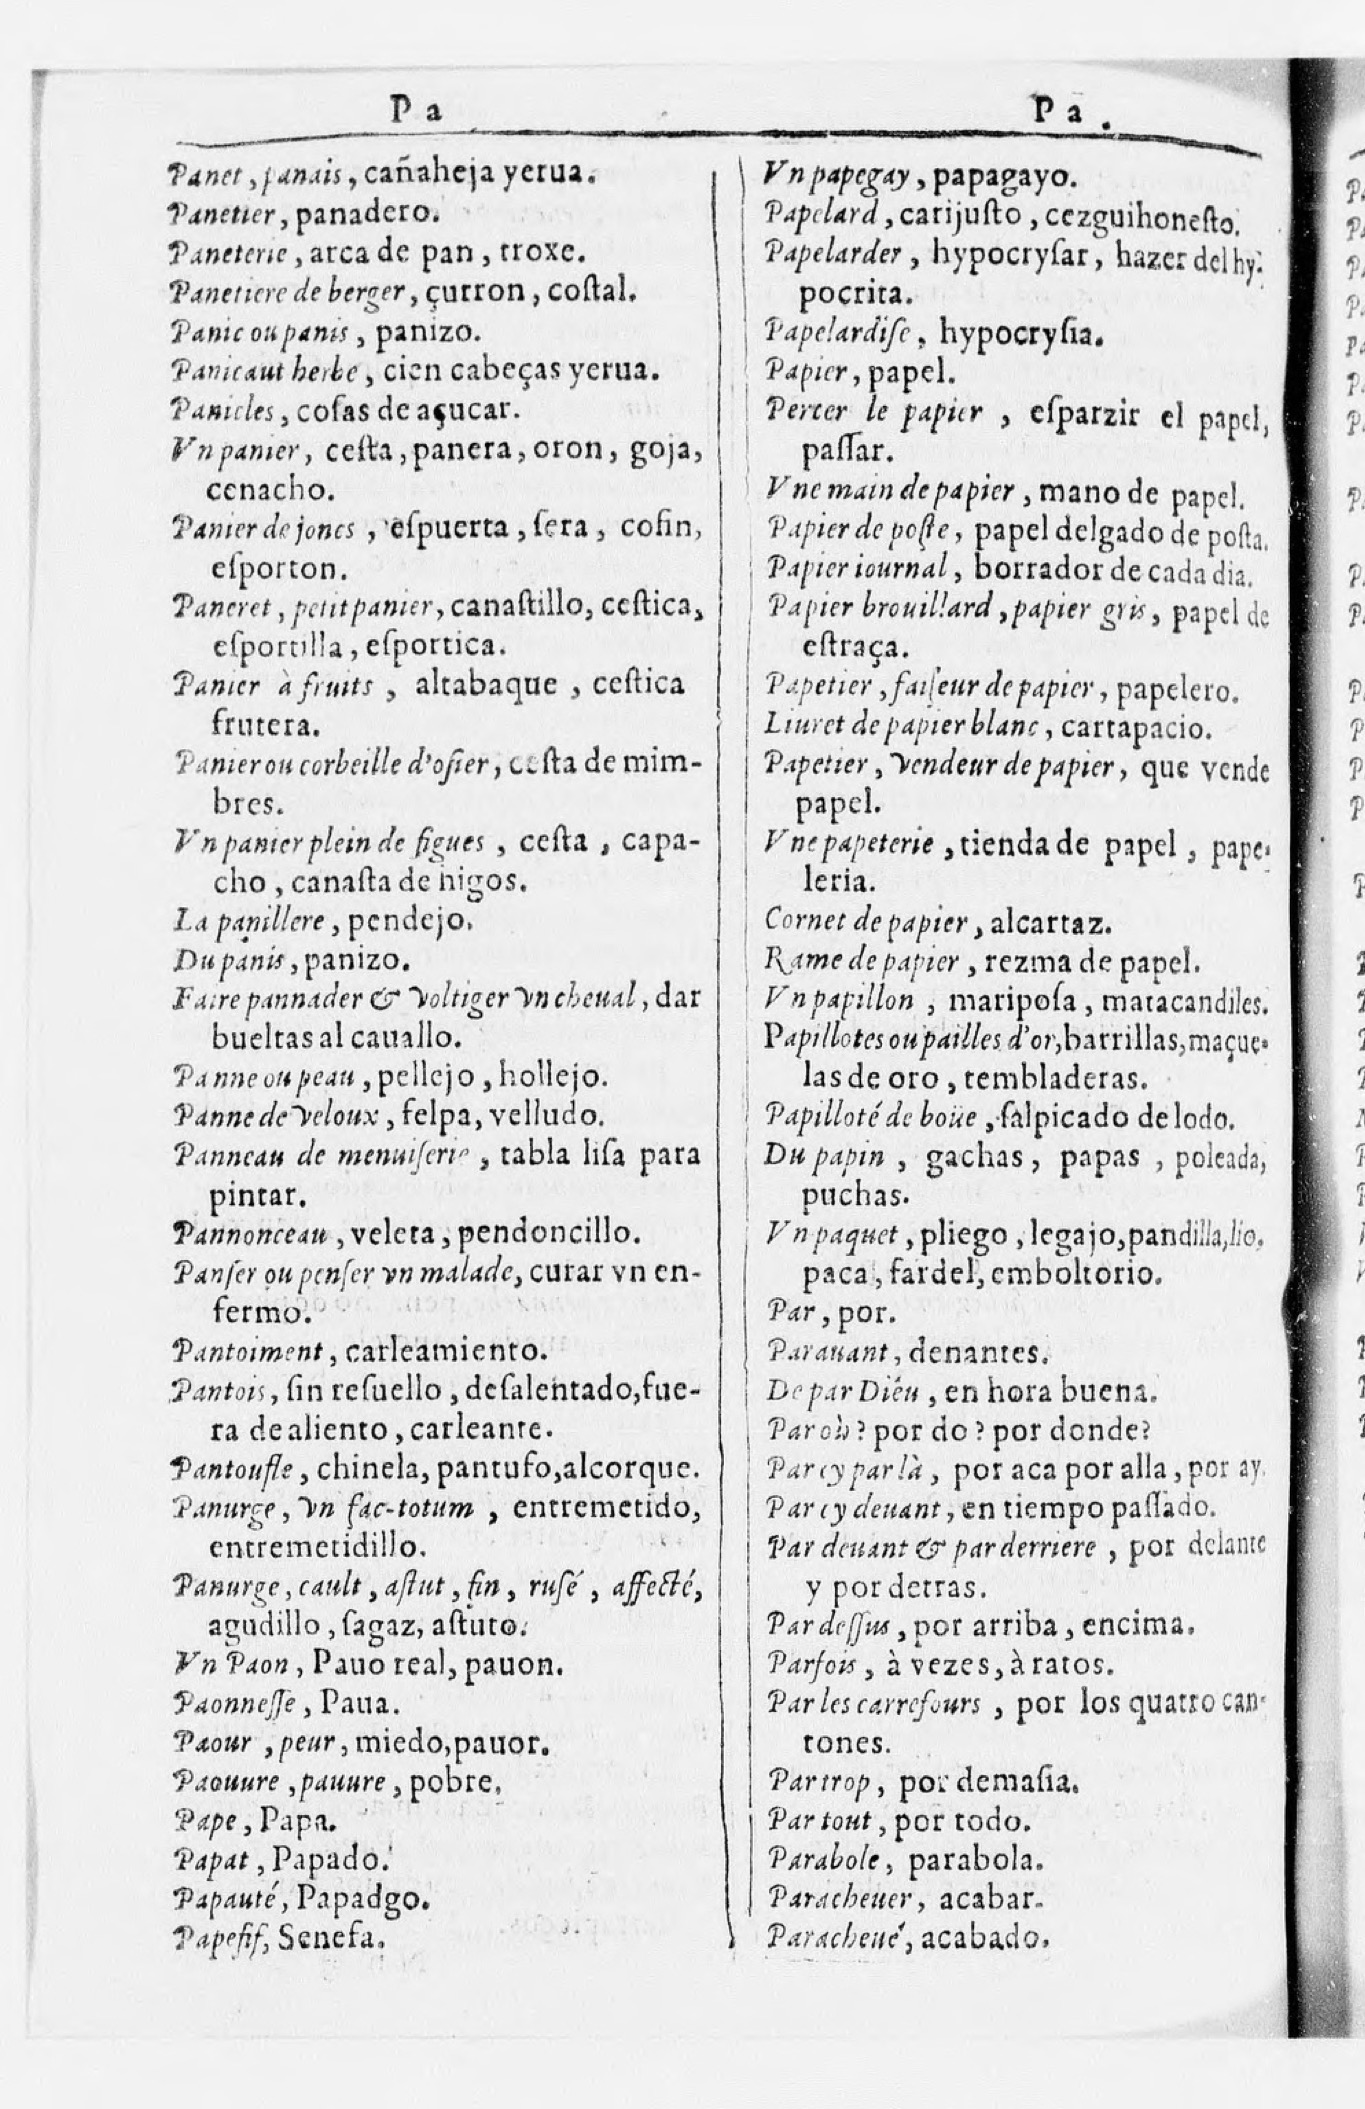 Pa
Panet, panais, cañaheja yerua.
Panetier, panadero.
Paneterie, arca de pan, troxe.
Panetiere de berger, çurron, coſtal.
Panic ou panis, panizo.
Panicaut herbe, cien cabeças yerua.
Panicles, coſas de açucar.
Vn panier, ceſta, panera, oron, goja,
cenacho.
Panier de joncs, eſpuerta, ſera, cofin,
eſporton.
Paneret, petit panier, canaſtillo, ceſtica,
eſportilla, eſportica.
Panier à fruits, altabaque, ceſtica
frutera.
Panier ou corbeille d'oſier, ceſta de mim-
bres.
Vn panier plein de figues, ceſta, capa-
cho, canaſta de higos.
La panillere, pendejo.
Du panis, panizo.
Faire pannader & voltiger vn cheual, dar
bueltas al cauallo.
Panne ou peau, pellejo, hollejo.
Panne de veloux, felpa, velludo.
Panneau de menuiſerie, tabla liſa para
pintar.
Pannonceau, veleta, pendoncillo.
Panſer ou penſer vn malade, curar vn en-
fermo.
Pantoiment, carleamiento.
Pantois, ſin reſuello, deſalentado, fue-
ra de aliento, carleante.
Pantoufle, chinela, pantufo, alcorque.
Panurge, vn fac-totum, entremetido,
entremetidillo.
Panurge, cault, aſtut, fin, ruſé, affecté,
agudillo, ſagaz, aſtuto.
Vn Paon, Pauo real, pauon.
Paonneſſe, Paua.
Paour, peur, miedo, pauor.
Paouure, pauure, pobre.
Pape, Papa.
Papat, Papado.
Papauté, Papadgo.
Papefif, Senefa.
Pa.
Vn papegay, papagayo.
Papelard, carijuſto, cezguihoneſto.
Papelarder, hypocryſar, hazer del hy-
pocrita.
Papelardiſe, hypocryſia.
Papier, papel.
Percer le papier, eſparzir el papel,
paſſar.
Vne main de papier, mano de papel.
Papier de poſte, papel delgado de poſta.
Papier iournal, borrador de cada dia.
Papier brouillard, papier gris, papel de
eſtraça.
Papetier, faiſeur de papier, papelero.
Liuret de papier blanc, cartapacio.
Papetier, vendeur de papier, que vende
papel.
Vne papeterie, tienda de papel, pape-
leria.
Cornet de papier, alcartaz.
Rame de papier, rezma de papel.
Vn papillon, maripoſa, matacandiles.
Papillotes ou pailles d'or, barrillas, maçue-
las de oro, tembladeras.
Papilloté de boüe, ſalpicado de lodo.
Du papin, gachas, papas, poleada,
puchas.
Vn paquet, pliego, legajo, pandilla, lio,
paca, fardel, emboltorio.
Par, por.
Parauant, denantes.
De par Dieu, en hora buena.
Par où? por do? por donde?
Par cy par là, por aca por alla, por ay.
Par cy deuant, en tiempo paſſado.
Par deuant & par derriere, por delante
y por detras.
Par deſſus, por arriba, encima.
Parfois, à vezes, à ratos.
Par les carrefours, por los quatro can-
tones.
Par trop, por demaſia.
Par tout, por todo.
Parabole, parabola.
Paracheuer, acabar.
Paracheué, acabado.